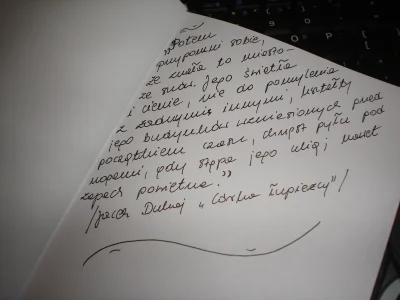 „Potem
przypomni sobie,
że znała to miasto-
ze snów. Jego światła
i cienie, nie do pomylenia
z żadnymi innymi, kształty
jego budynków wzniesionych przed
początkiem czasu, chrzęst pyłu pod
nogami, gdy stąpa jego ulicą i nawet
zapach powietrza.”
/Jacek Dukaj „Córka Łupieżcy”/